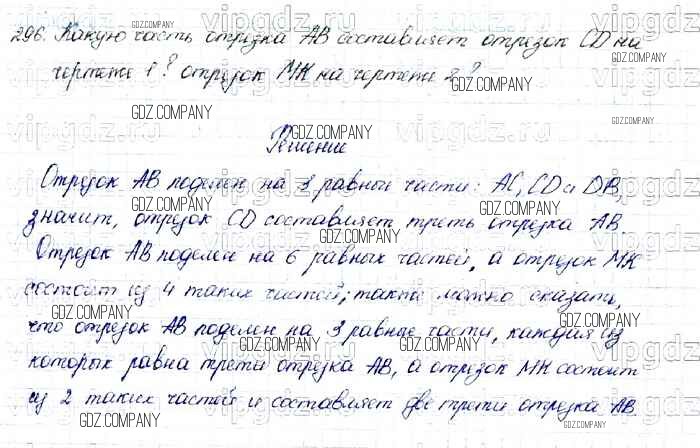 296. Какую часть отрезка АВ составляет отрезок CD на
чертеже 1? отрезок МК на чертеже 2?
Решение
Отрезок АВ поделен на 3 равные части: АС, CD и DB,
значит, отрезок CD составляет треть отрезка АВ.
Отрезок АВ поделен на 6 равных частей, а отрезок МК
состоит из 4 таких частей; также можно сказать,
что отрезок АВ поделен на 3 равные части, каждая из
которых равна трети отрезка АВ, а отрезок МК состоит
из 2 таких частей и составляет две трети отрезка АВ
GDZ.COMPANY
vipgdz.ru